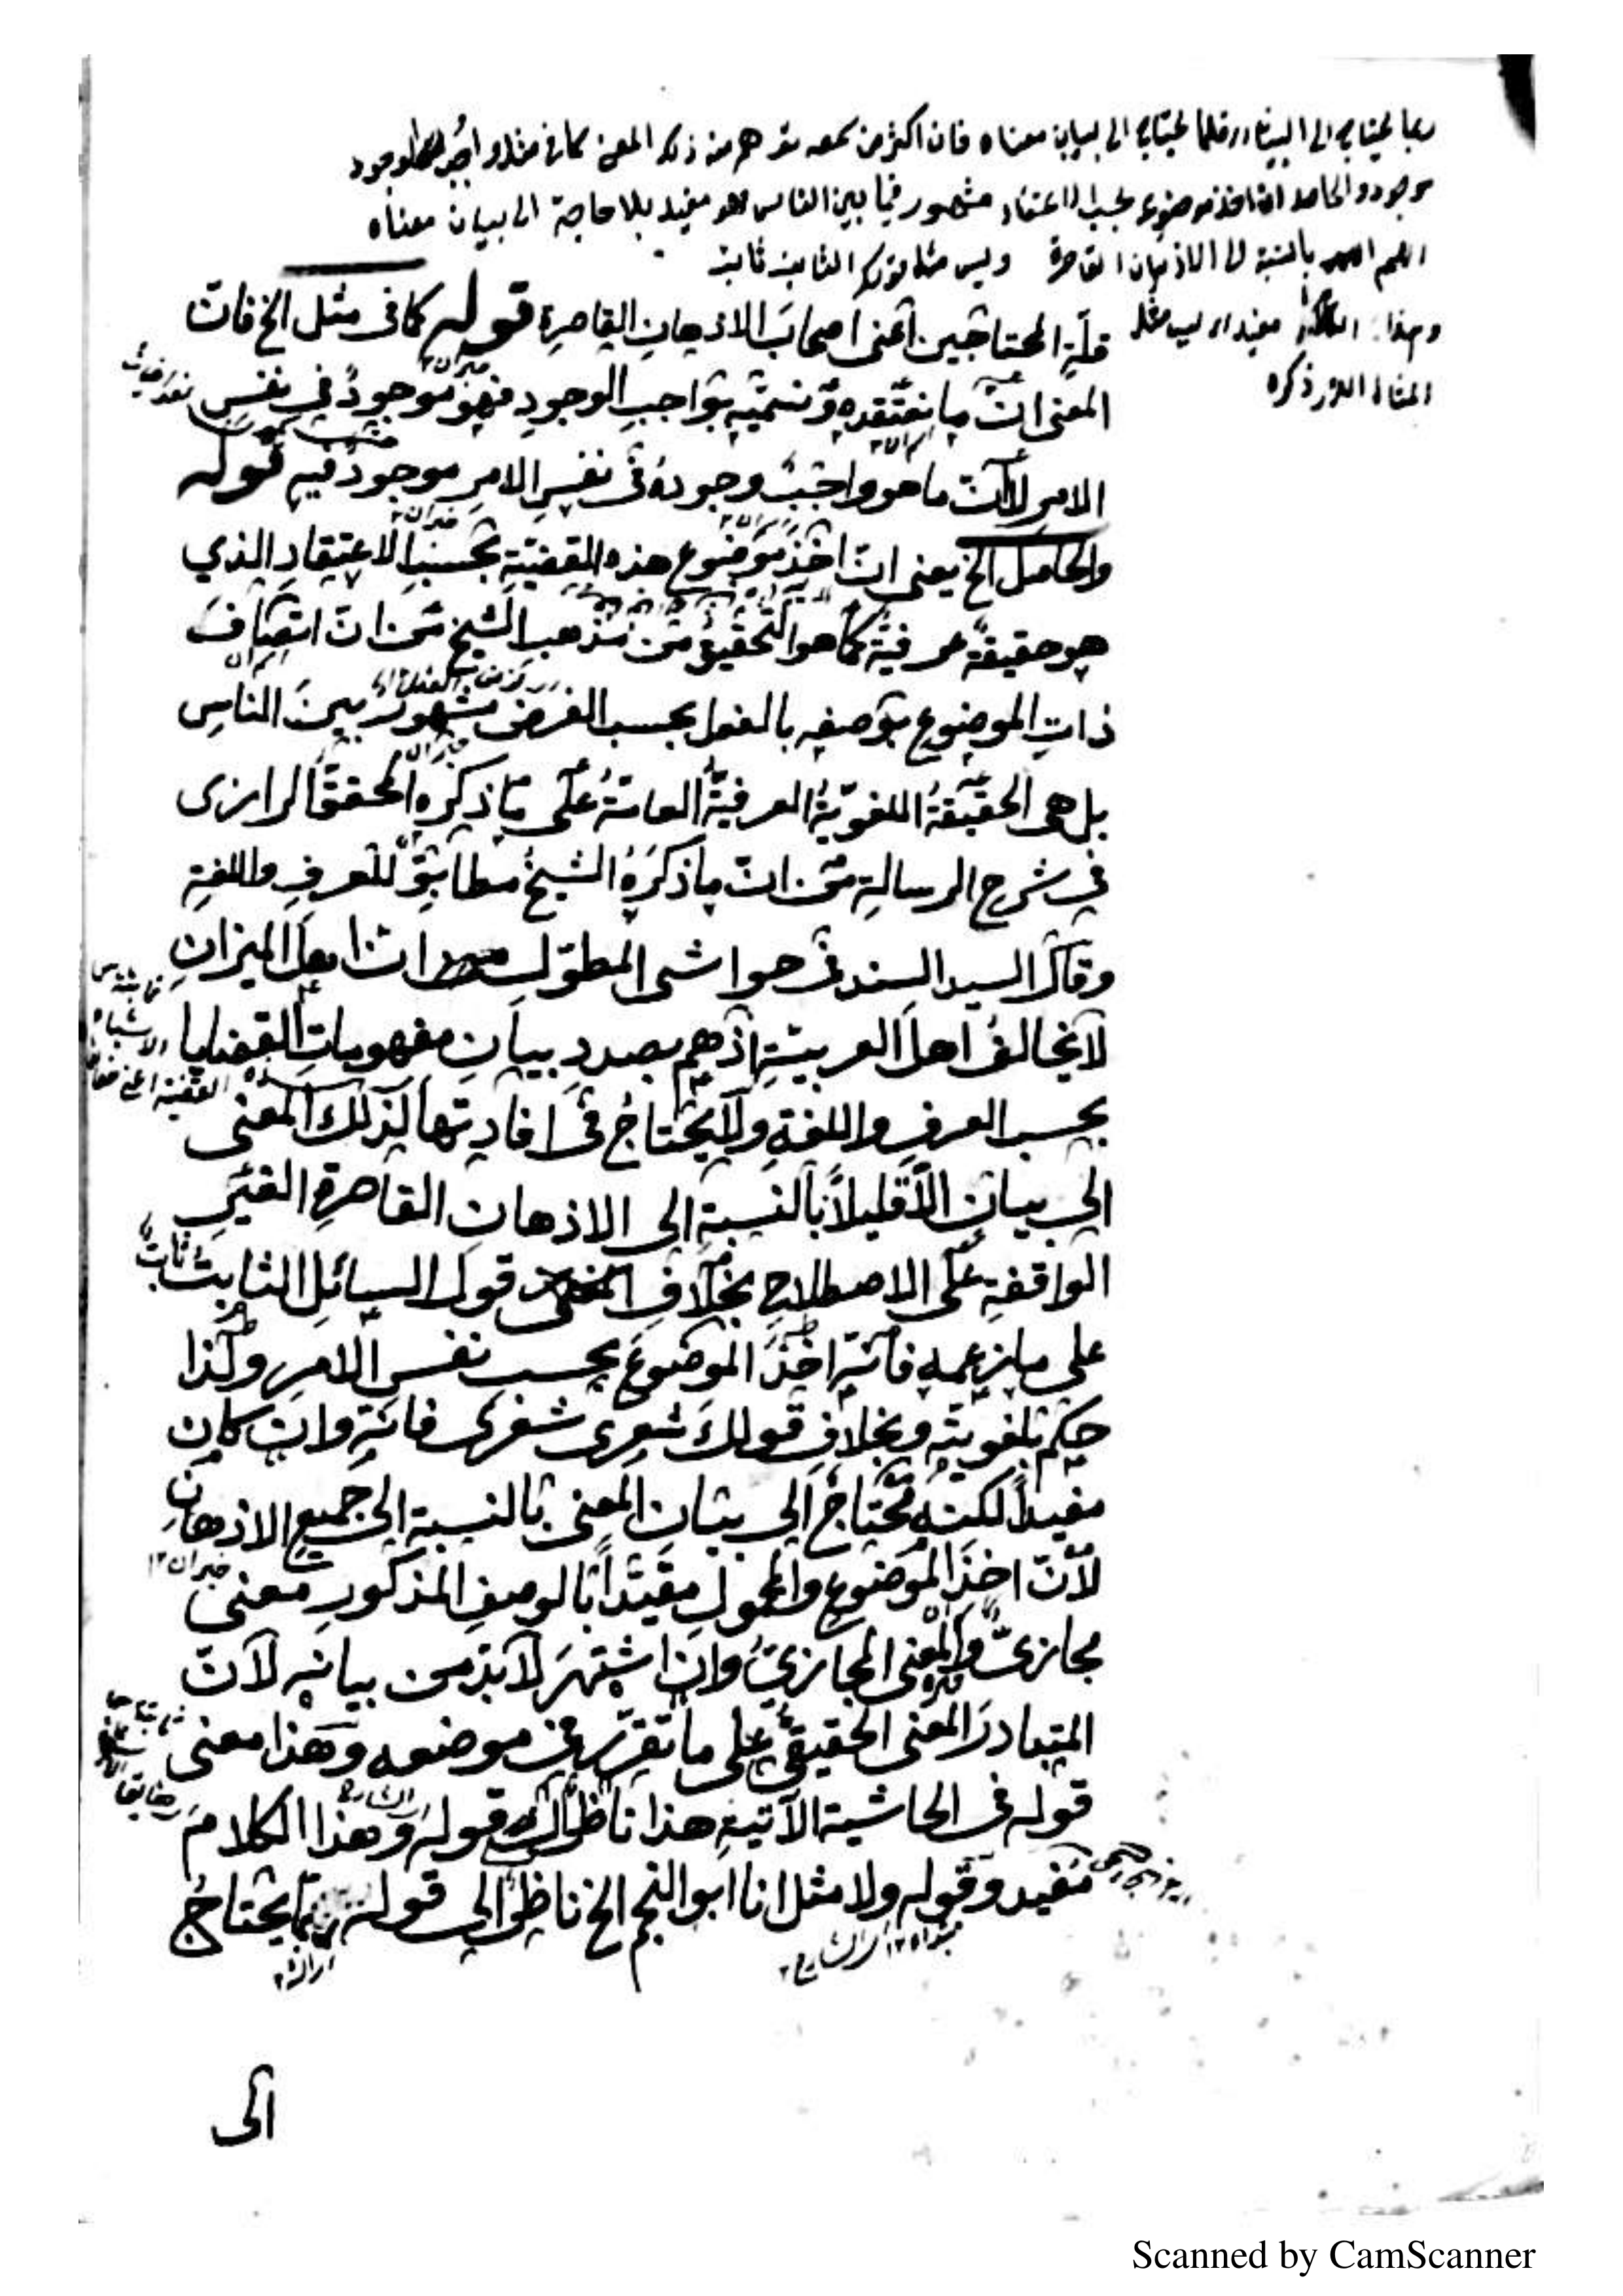 ربما يحتاج الى البيان وقلما يحتاج الى بيان معناه فان اكثر من سمعه هم منه ذلك المعنى كما في مثل واجب الوجود
موجود والحاصل ان اخذ موضوع بحسب الاعتقاد مشهور فيما بين الناس فهو مفيد بلا حاجة الى بيان معناه
اللهم بالنسبة الى الاذهان القاصرة وليس مثل قولك الثابت ثابت
وهذا الكلام مفيد ليس مثل
المثال الذي ذكره
قلّةِ المحتاجين اعنى اصحابَ الاذهانِ القاصرةِ قوله كما فى مثل الخ فانّ
المعنى انّ ما نعتقده ونسمّيه بواجبِ الوجودِ فهو موجودٌ في نفسِ
الامر لانّ ما هو واجبٌ وجودهُ فى نفسِ الامرِ موجودٌ فيه قوله
والحاصل الخ يعنى انّ اخذَ موضوعِ هذه القضيّة بحسبِ الاعتقادِ الذي
هو حقيقةٌ عرفيّةٌ كما هو التحقيقُ من مذهب الشيخِ من انّ اتصافَ
ذاتِ الموضوعِ بوصفه بالفعل بحسب الفرض مشهورٌ بينَ الناسِ
بل هى الحقيقةُ اللغويّةُ العرفيةُ العامّةُ على ما ذكره المحققُ الرازى
في شرح الرسالةِ من انّ ما ذكرَهُ الشيخُ مطابقٌ للعرفِ واللغةِ
وقال السيد السند فى حواشى المطوّل انّ اهلَ الميزانِ
لا يخالفُ اهلَ العربيّةِ اذ هم بصددِ بيانِ مفهوماتِ القضايا
بحسب العرفِ واللغةِ ولا يحتاجُ فى افادتها لذلك المعنى
الى بيانٍ الّا قليلاً بالنسبةِ الى الاذهان القاصرةِ الغيرِ
الواقفةِ على الاصطلاحِ بخلافِ قول السائلِ الثابتُ ثابتٌ
على ما زعمه فانّه اخذَ الموضوعَ بحسبِ نفس الامرِ ولذا
حكم بلغويّته وبخلافِ قولكَ شعرى شعرى فانّه وان كان
مفيداً لكنه محتاجٌ الى بيان المعنى بالنسبةِ الى جميعِ الاذهان
لانّ اخذَ الموضوعِ والمحمولِ مقيّداً بالوصفِ المذكورِ معنى
مجازىٌّ والمعنى المجازىُّ وان اشتهرَ لا بدّ من بيانه لانّ
المتبادرَ المعنى الحقيقىُّ على ما تقرّر فى موضعه وهذا معنى
قوله فى الحاشية الآتيةِ هذا ناظرٌ الى قوله وهذا الكلامَ
مفيد وقوله ولا مثل انا ابو النجم الخ ناظرٌ الى قوله ربما يحتاجُ
الى
Scanned by CamScanner